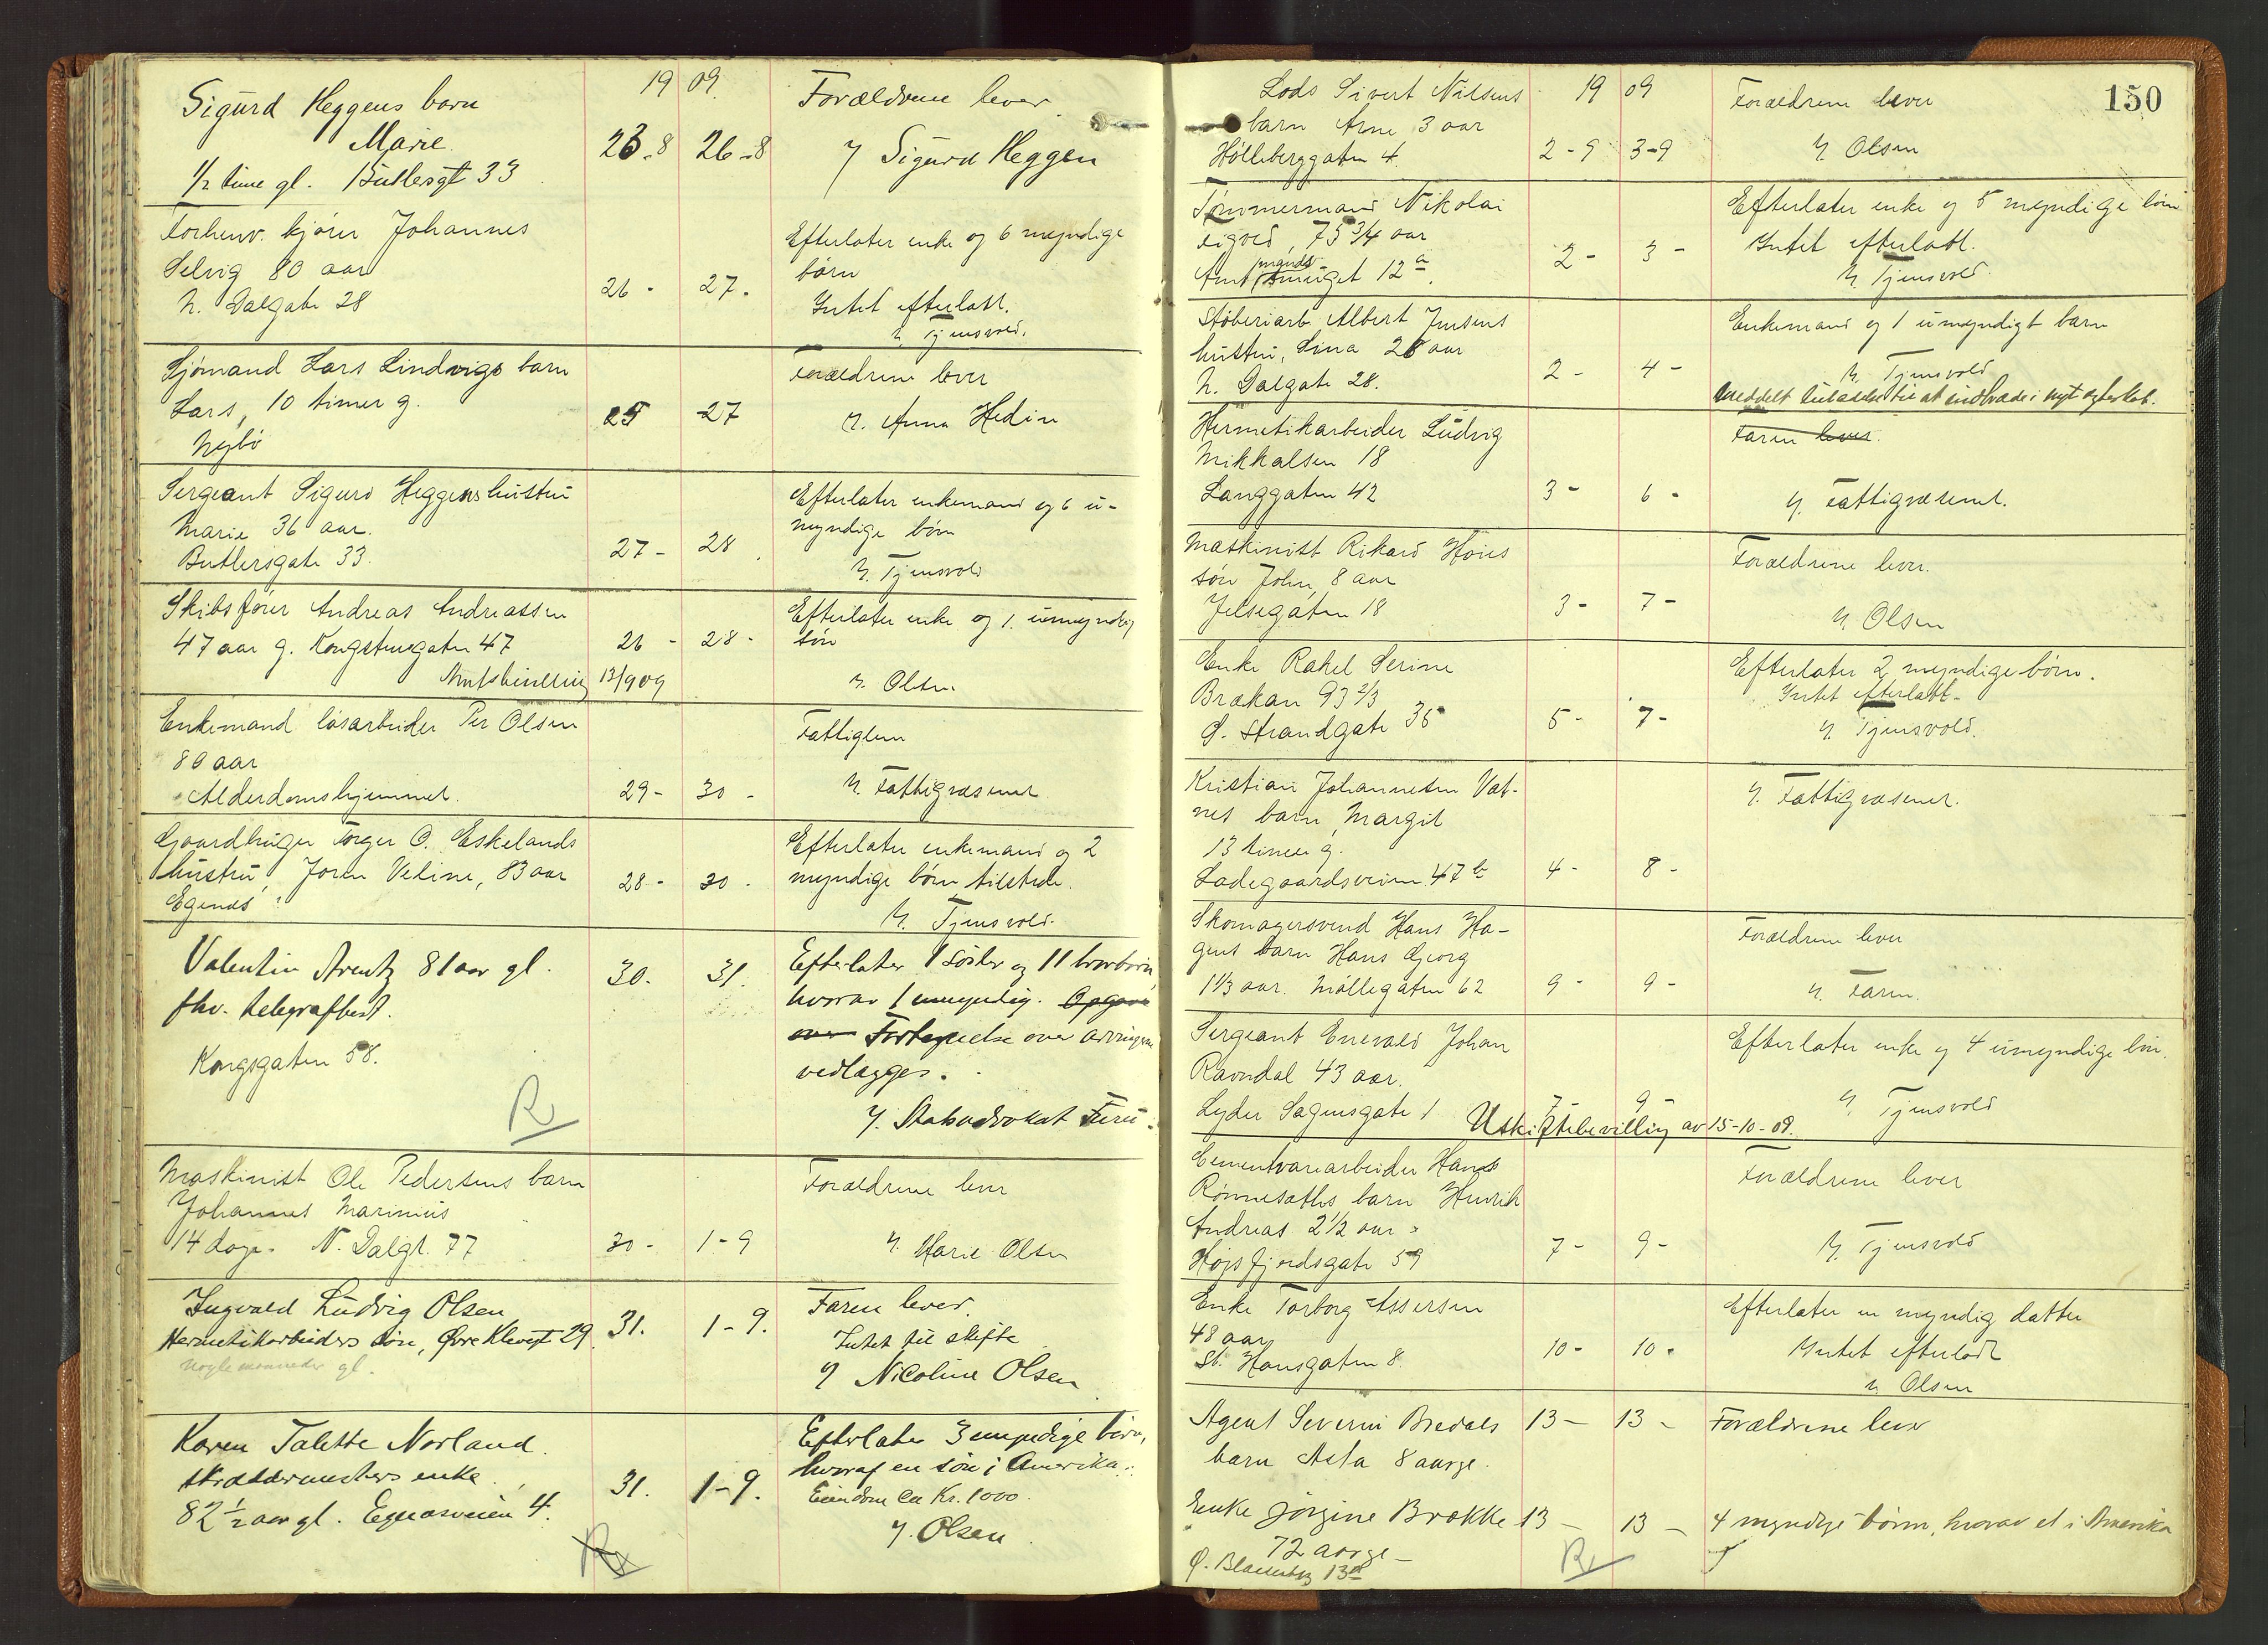 19 09.
Sigurd Heggens barn
Marie.
1/2 time gl. Butlersgt 33
23-8 26-8
Forældrene lever
/ Sigurd Heggen
Forhenv. kjører Johannes
Selvig 80 aar
N. Dalgate 28
26 - 27.
Efterlater enke og 6 myndige
børn
Intet efterlatt.
/ Tjensvold.
Sjømand Lars Lindvigs barn
Lars, 10 timer g.
Nybø
25 - 27
Forældrene lever
/ Anna Hedin
Sergeant Sigurd Heggens hustru
Marie 36 aar.
Butlersgate 33.
27 - 28
Efterlater enkemand og 6 u-
myndige børn
/ Tjensvold
Skibsfører Andreas Andreassen
47 aar g. Kongstensgaten 47
26 - 28 -
13/9 09
Efterlater enke og 1 umyndig
søn
/ Olsen
Enkemand løsarbeider Per Olsen
80 aar
Alderdomshjemmet.
29 - 30 -
Fattiglem
/ Fattigvæsenet
Gaardbruger Torger O. Eskelands
hustru, Joren Veline, 83 aar
Egenes
28 - 30 -
Efterlater enkemand og 2
myndige børn, tilstede.
/ Tjensvold.
Valentin Arentz 81 aar gl.
fhv. telegrafbest.
Kongsgaten 58.
30. 31.
Efterlater 1 søster og 11 brorbørn
hvorav 1 umyndig. Opgave
over Fortegnelse over arvingerne
vedlægges.
/ Statsadvokat Furu.
R
Maskinist Ole Pedersens barn
Johannes Marinius
14 dage. N. Dalgt. 77
30 - 1-9
Forældrene lever
/ Marie Olsen
Ingvald Ludvig Olsen
Hermetikarbeiders søn, Øvre Klevegt 29.
nogle maaneder gl.
31. 1-9.
Faren lever.
Intet til skifte
/ Nicoline Olsen
Karen Talette Norland.
skræddermesters enke
82 1/2 aar gl. Egenæsveien 4.
31. 1-9.
Efterlater 3 myndige børn,
hvoraf en søn i Amerika.
Eiendom ca Kr. 1000.
/ Olsen
R
150
19 09
Lods Sivert Nilsens
barn Arne 3 aar
Hølleberggaten 4.
2-9 3-9
Forældrene lever
/ Olsen
Tømmermand Nikolai
Eigved, 75 3/4 aar
Amtmandssmuget 12 a.
2 - 3 -
Efterlater enke og 5 myndige børn
Intet efterlatt.
/ Tjensvold.
Støberiarb. Albert Jensens
hustru, Sina 28 aar
N. Dalgate 28.
2 - 4 -
Enkemand og 1 umyndigt barn
/ Tjensvold
Meddelt tilladelse til at indtræde i nyt egteskab.
Hermetikarbeider Ludvig
Mikkalsen 18
Langgaten 42
3 - 6 -
Faren lever.
/ Fattigvæsenet.
Maskinist Rikard Høies
søn John, 8 aar
Jelsegaten 18
3 - 7 -
Forældrene lever.
/ Olsen
Enke Rakel Serine
Brækan 93 2/3
Ø. Strandgate 35
5 - 7 -
Efterlater 2 myndige børn.
Intet efterlatt -
/ Tjensvold.
Kristian Johannesen Vat-
nes barn, Margit
13 timer g.
Ladegaardsveien 47 b
4 - 8 -
/ Fattigvæsenet.
Skomagersvend Hans Ha-
gens barn Hans Georg
1 1/3 aar. Møllegaten 62
9 - 9 -
Forældrene lever
/ Faren.
Sergeant Enevald Johan
Ravndal 43 aar.
Lyder Sagensgate 1
7 - 9 -
Efterlater enke og 4 umyndige børn.
/ Tjensvold
Uskiftebevilling av 15-10-09.
Cementvarearbeider Hans
Rønnesæths barn Henrik
Andreas 2 1/2 aar.
Høgsfjordsgate 59
7 - 9 -
Forældrene lever
/ Tjensvold
Enke Torborg Assersen
48 aar
St. Hansgaten 8.
10 - 10 -
Efterlater en myndig datter
Intet efterladt
/ Olsen
Agent Severin Bredals
barn Asta 8 aarge.
13 - 13 -
Forældrene lever
Enke Jorgine Brokke
72 aarge
Ø. Blaasenborg 13 a
13 - 13 -
4 myndige børn, hvorav et i Amerika
R